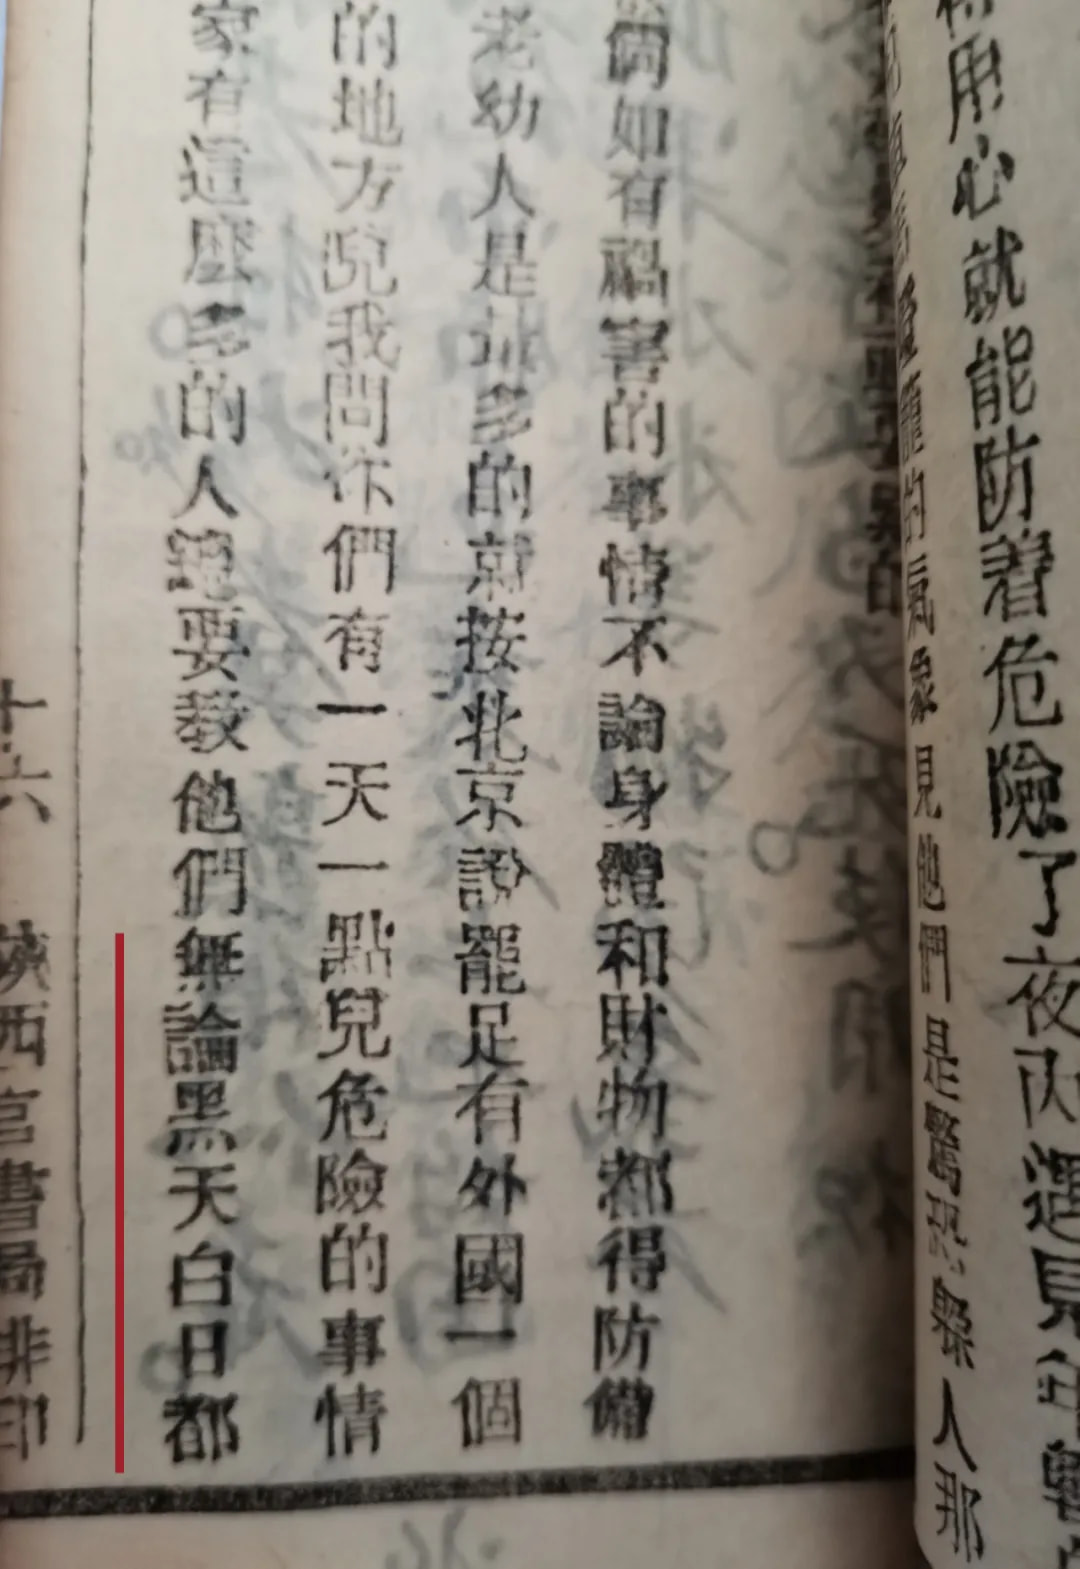 用心就能防着危險了夜內遇見年
龍的氣象見他們是驚恐縣人那
倘如有禍害的事情不論身體和財物都得防備
老幼人是頂多的就按北京說罷足有外國一個
的地方兒我問你們有一天一點兒危險的事情
家有這麼多的人總要教他們無論黑天白日都
十六 陝西官書局排印